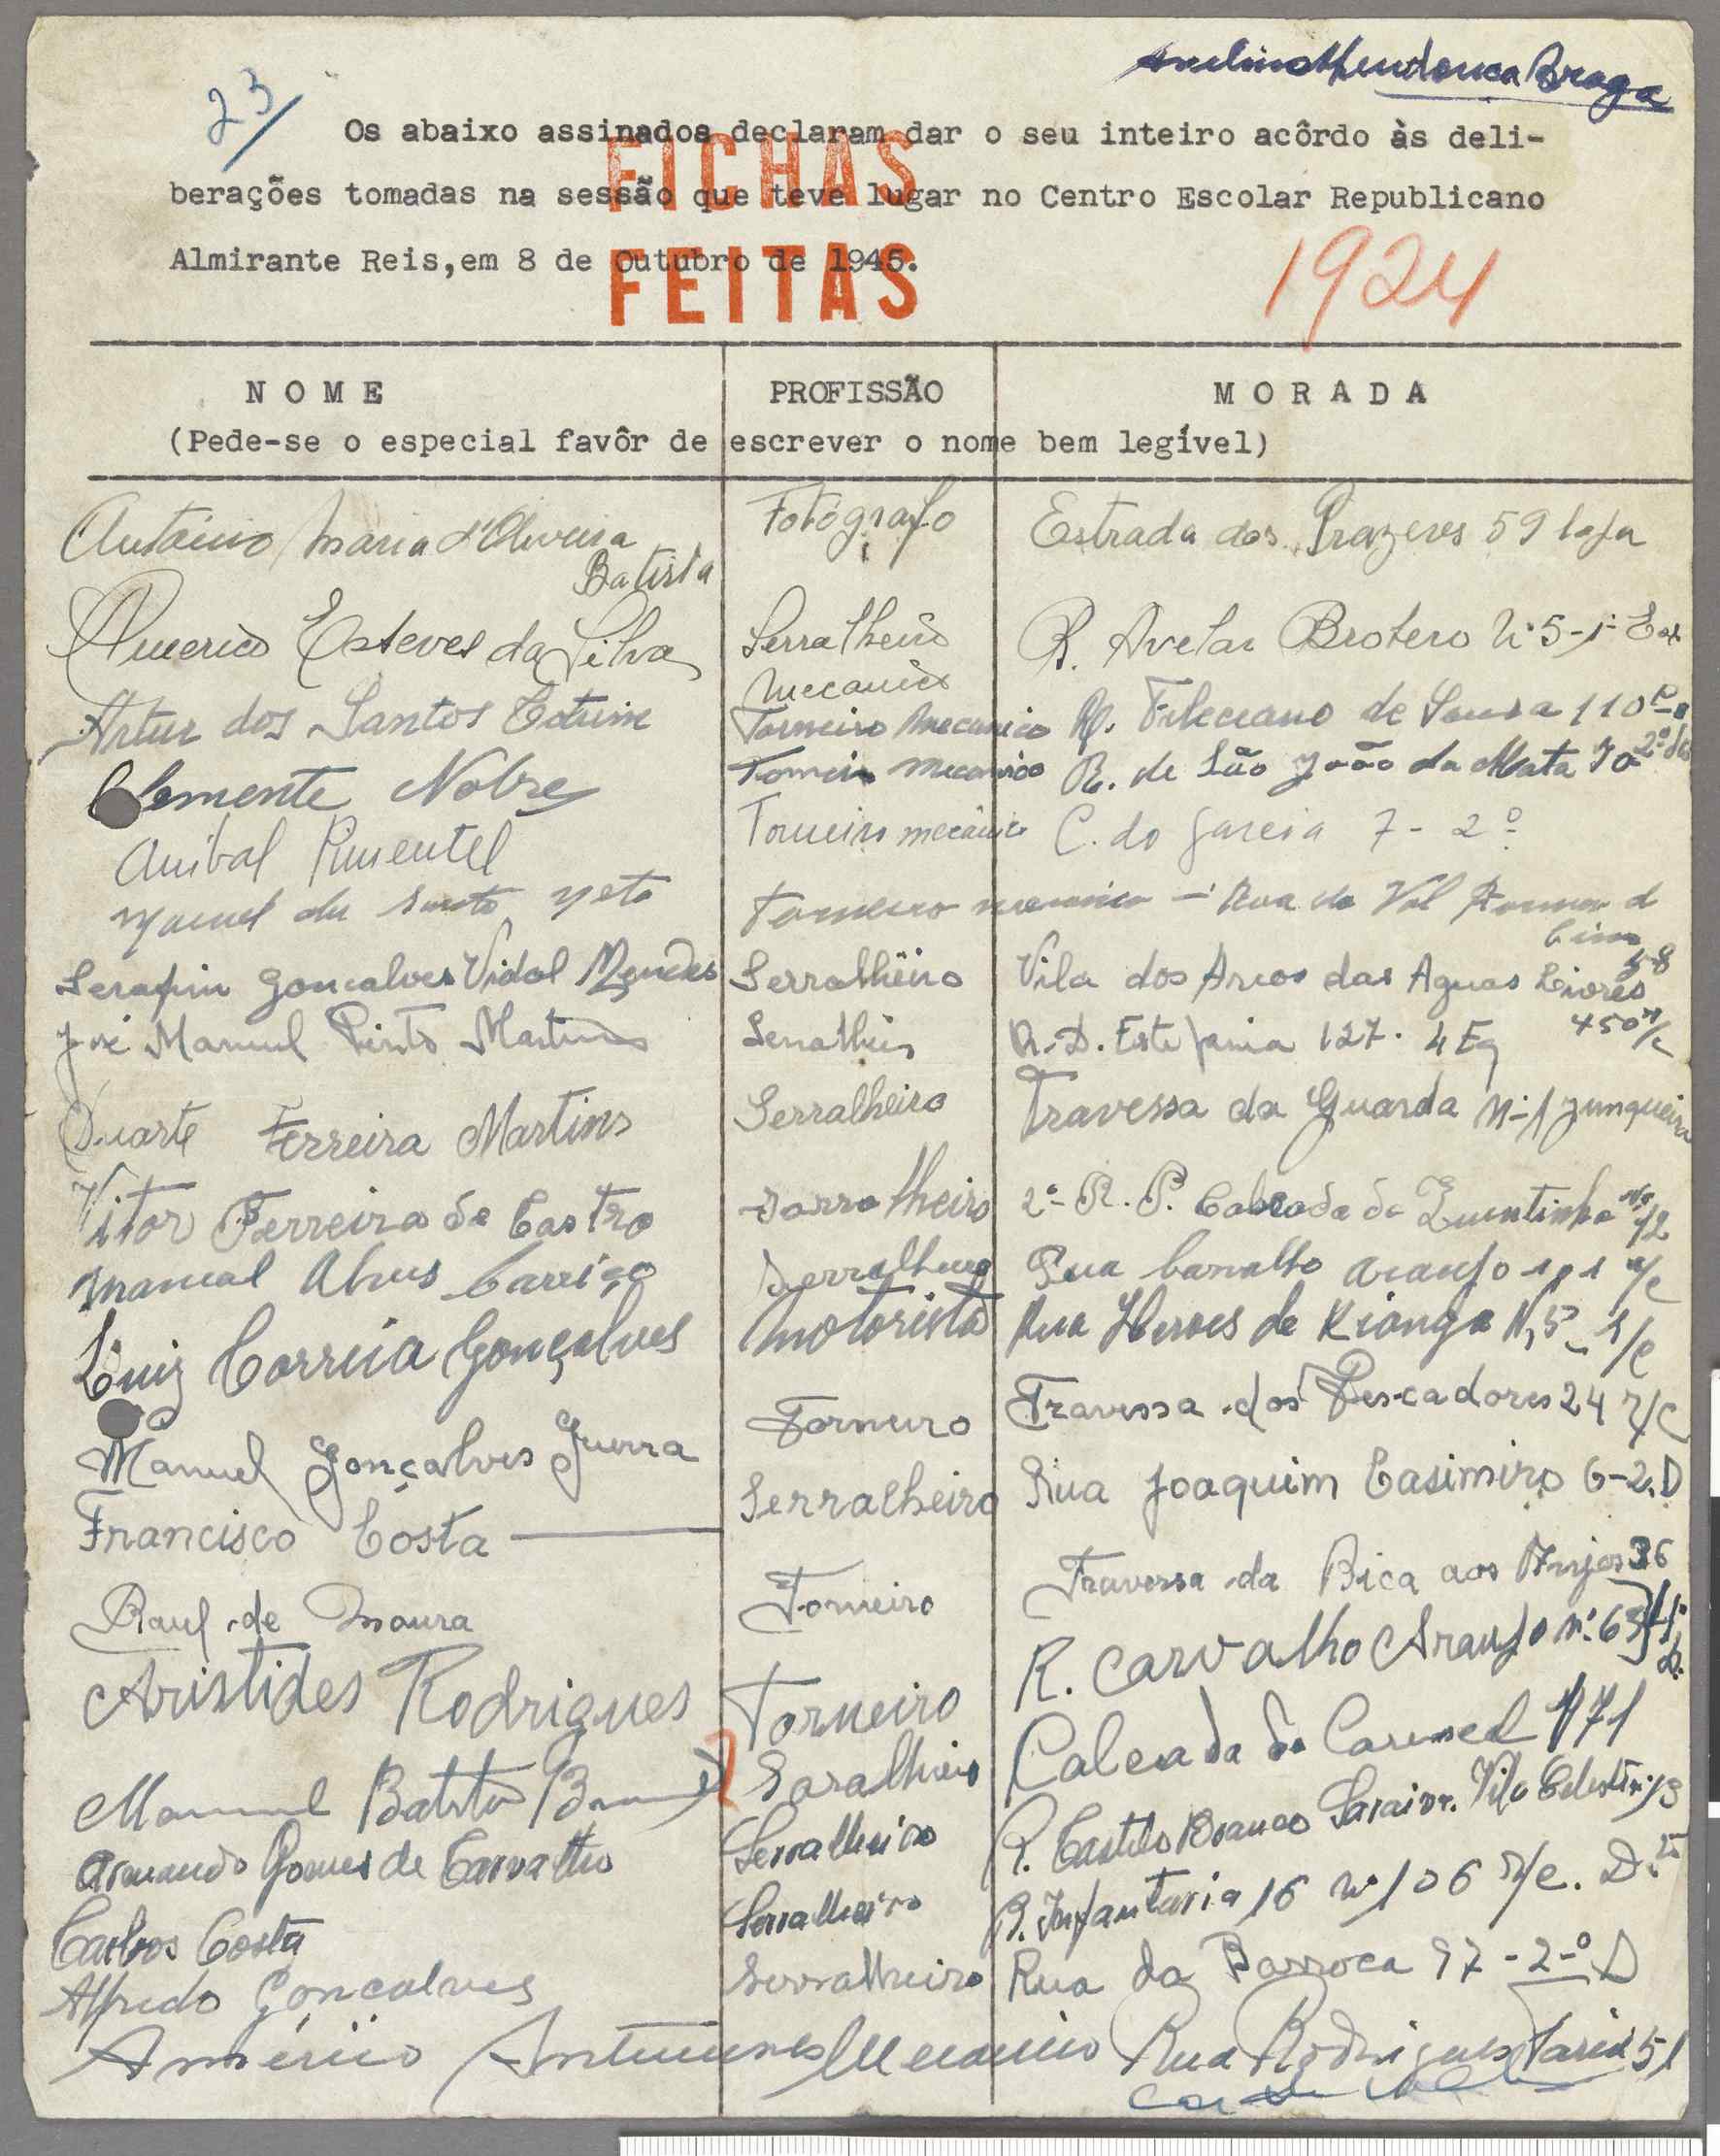 Mendonca Braga
23/
Os abaixo assinados declaram dar o seu inteiro acôrdo às deli-
berações tomadas na sessão que teve lugar no Centro Escolar Republicano
Almirante Reis,em 8 de Outubro de 1945.
FICHAS
FEITAS
1924
NOME PROFISSÃO MORADA
(Pede-se o especial favôr de escrever o nome bem legível)
António Maria d'Oliveira Batista Fotógrafo Estrada dos Prazeres 59 loja
Americo Esteves da Silva Serralheiro Mecanico R. Avelar Brotero Nº 5-1º Esq
Artur dos Santos Torneiro Mecanico R. Feleciano de Sousa 110
Clemente Nobre Torneiro Mecanico R. de São João da Mata 70 2º
Anibal Pimentel Torneiro mecânico C. do Garcia 7-2º
Manuel dos Santos Neto Torneiro mecanico Rua do Val Formoso de Cima
Serafim Gonçalves Vidal Mendes Serralheiro Vila dos Arcos das Aguas Livres
José Manuel Pinto Martins Serralheiro R. D. Estefania 127. 4 Eq
Duarte Ferreira Martins Serralheiro Travessa da Guarda Nº 1 Junqueira
Vitor Ferreira de Castro Sarralheiro 2º R. P. Calcada da Quintinha Nº 12
Manuel Alves Carriço Serralheiro Rua Carvalho Araujo 101 r/c
Luiz Correia Gonçalves Motorista Rua Heroes de Kionga N, 5 r/c
Manuel Gonçalves Guerra Torneiro Travessa dos Pescadores 24 r/c
Francisco Costa Serralheiro Rua Joaquim Casimiro 6-2.D
Raul de Moura Torneiro Travessa da Bica aos Anjos 36
Aristides Rodrigues Torneiro R. Carvalho Araujo nº 63
Manuel Batista Saralheiro Calcada do Carmo Nº 71
Armando Gomes de Carvalho Serralheiro R. Castelo Branco Saraiva. Vila Celestino 13
Carlos Costa Serralheiro R. Infantaria 16 Nº 106 r/c. D.to
Alfredo Gonçalves Serralheiro Rua da Barroca 97-2-º D
Américo Antunes Mecanico Rua Rodrigues Faria 51